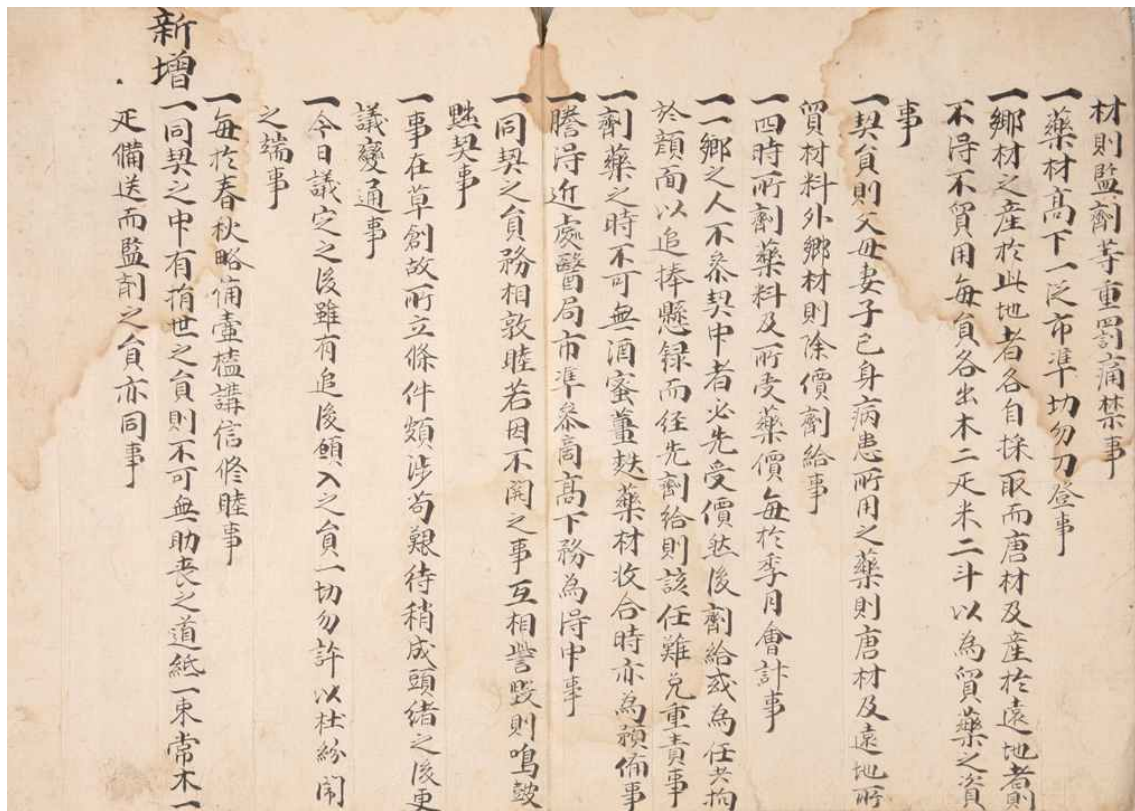 材則監劑等重罰痛禁事
一藥材高下一從市準切勿刀登事
一鄉材之產於此地者各自採取而唐材及產於遠地者則
不得不貿用每員各出木二疋米二斗以爲貿藥之資
事
一契員則父母妻子己身病患所用之藥則唐材及遠地所
貿材料外鄉材則除價劑給事
一四時所劑藥料及所受藥價每於季月會計事
一一鄉之人不參契中者必先受價然後劑給或爲任夫拘
於顔面以追捧懸録而徑先劑給則該任難免重責事
一劑藥之時不可無酒蜜薑麩藥材收合時亦爲預備事
一謄得近處醫局市準參商高下務爲得中事
一同契之員務相敦睦若因不關之事互相訾毁則鳴鼓
黜契事
一事在草創故所立條件頗涉苟艱待稍成頭緒之後更
議變通事
一今日議定之後雖有追後願入之員一切勿許以杜紛鬧
之端事
一每於春秋略備壺榼講信修睦事
新增一同契之中有捐世之員則不可無助喪之道紙一束常木一
疋備送而監劑之員亦同事